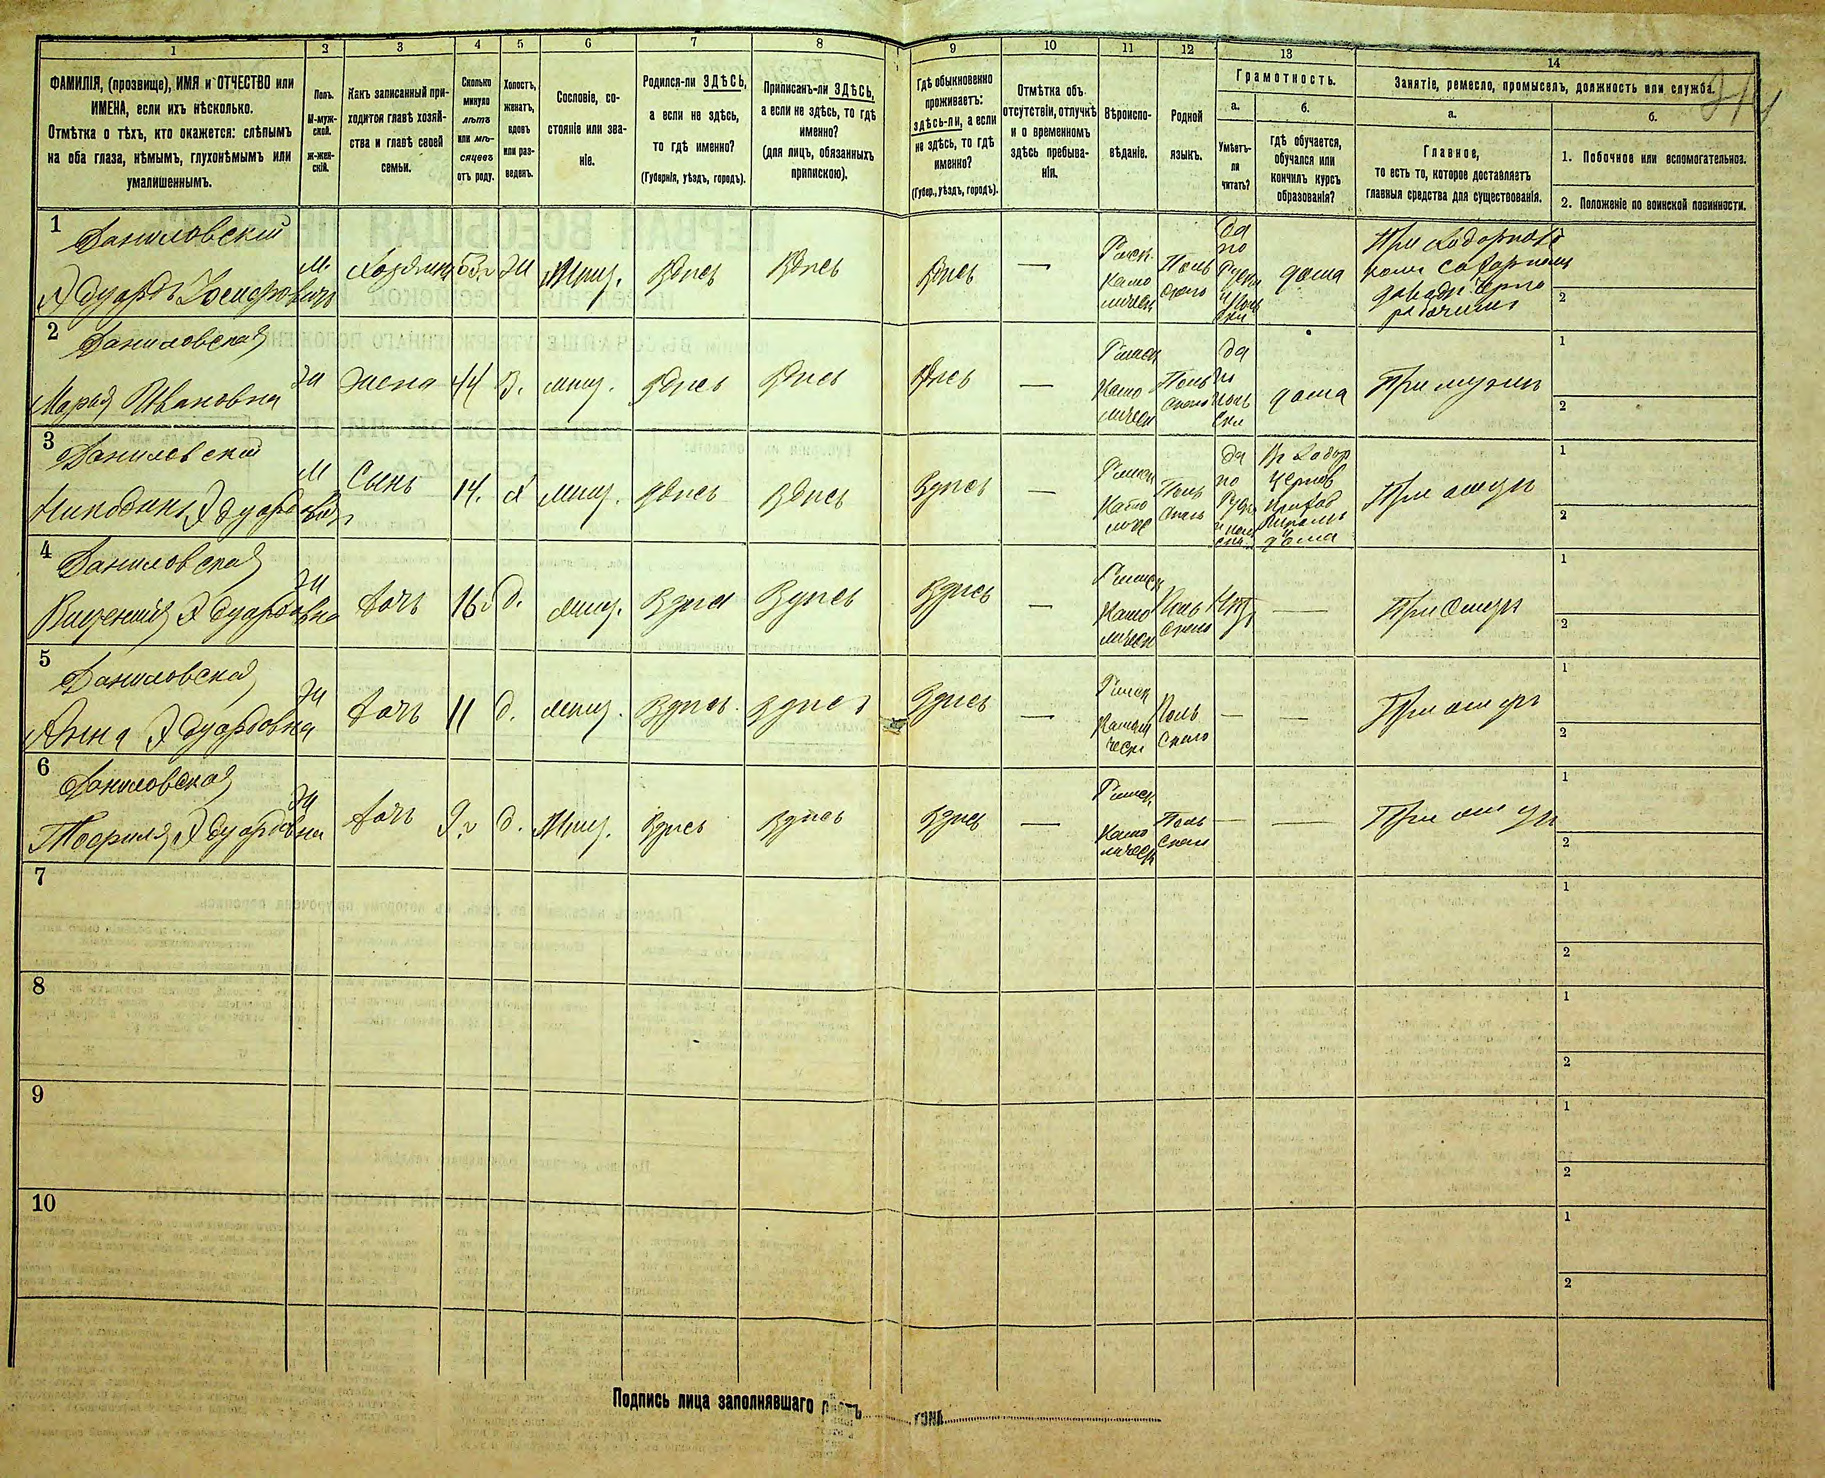 1 2 3 4 5 6 7 8 9 10 11 12 13 14
ФАМИЛІЯ, (прозвище), ИМЯ и ОТЧЕСТВО или
ИМЕНА, если ихъ нѣсколько.
Отмѣтка о тѣхъ, кто окажется: слѣпымъ
на оба глаза, нѣмымъ, глухонѣмымъ или
умалишеннымъ.
Полъ.
М-муж-
ской.
Ж-жен-
скій.
Какъ записанный при-
ходится главѣ хозяй-
ства и главѣ своей
семьи.
Сколько
минуло
лѣтъ
или мѣ-
сяцевъ
отъ роду.
Холостъ,
женатъ,
вдовъ
или раз-
веденъ.
Сословіе, со-
стояніе или зва-
ніе.
Родился-ли ЗДѢСЬ,
а если не здѣсь,
то гдѣ именно?
(Губернія, уѣздъ, городъ).
Приписанъ-ли ЗДѢСЬ,
а если не здѣсь, то гдѣ
именно?
(для лицъ, обязанныхъ
припискою).
Гдѣ обыкновенно
проживаетъ:
здѣсь-ли, а если
не здѣсь, то гдѣ
именно?
(Губер., уѣздъ, городъ).
Отмѣтка объ
отсутствіи, отлучкѣ
и о временномъ
здѣсь пребыва-
ніи.
Вѣроиспо-
вѣданіе.
Родной
языкъ.
Грамотность.
а.
Умѣетъ-
ли
читать?
б.
гдѣ обучается,
обучался или
кончилъ курсъ
образованія?
Занятіе, ремесло, промыселъ, должность или служба.
а.
Главное,
то есть то, которое доставляетъ
главныя средства для существованія.
б.
1. Побочное или вспомогательное.
2. Положеніе по воинской повинности.
1
Даниловский
Эдуардъ Іосифовичъ
м.
Хозяинъ
53
Ж
Мещ.
Здѣсь
Здѣсь
Здѣсь
—
Като
Поль
да
по
дома
2
2
Даниловская
Марья Ивановна
Ж
Жена
44
З.
мещ.
Здѣсь
Здѣсь
Здѣсь
—
Римск
Като
лическ
Поль
да
по
поль
ски
дома
При мужѣ
1
2
3
Даниловский
Эдуардовичъ
М
Сынъ
14.
Х
мещ.
Здѣсь
Здѣсь
Здѣсь
—
Римск
Като
Поль
да
по
дома
При отцѣ
1
2
4
Даниловская
Эдуардовна
Ж
Дочь
16
д.
мещ.
Здѣсь
Здѣсь
Здѣсь
—
Римск
Като
лическ
Поль
ского
Нѣт
—
При отцѣ
1
2
5
Даниловская
Анна Эдуардовна
Ж
Дочь
11
д.
мещ.
Здѣсь
Здѣсь
Здѣсь
—
Римск
Катали
ческ
Поль
ского
—
—
При отцѣ
1
2
6
Даниловская
Эдуардовна
Ж
Дочь
9
д.
Мещ.
Здѣсь
Здѣсь
Здѣсь
—
Римск
Като
лическ
Поль
—
—
При отцѣ
1
2
7
1
2
8
1
2
9
1
2
10
1
2
Подпись лица заполнявшаго